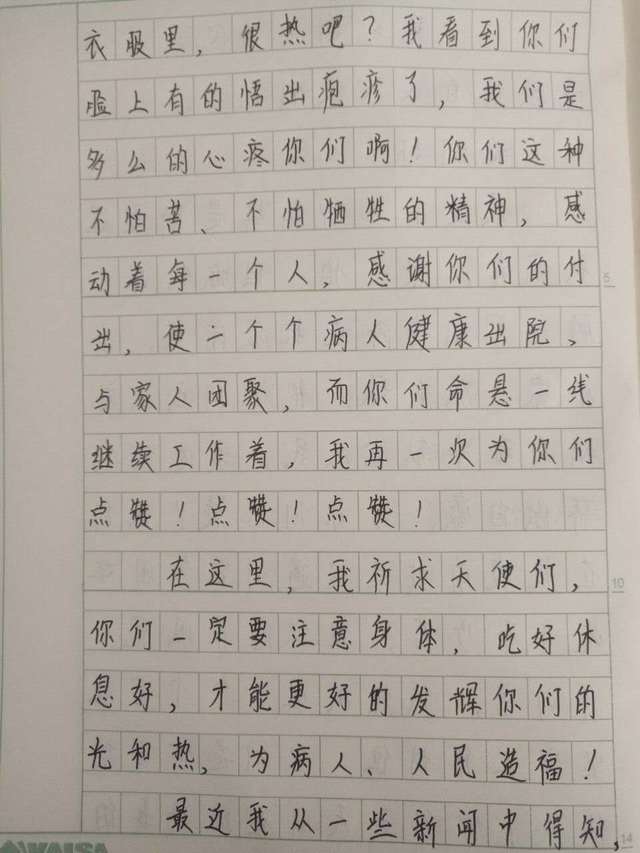 衣服里，很热吧？我看到你们
脸上有的悟出疱疹了，我们是
多么的心疼你们啊！你们这种
不怕苦、不怕牺牲的精神，感
动着每一个人，感谢你们的付
6
出，使一个个病人健康出院、
与家人团聚，而你们命悬一线
继续工作着，我再一次为你们
点赞！点赞！点赞！
在这里，我祈求天使们，
10
你们一定要注意身体，吃好休
息好，才能更好的发辉你们的
光和热，为病人、人民造福！
最近我从一些新闻中得知，
14
KAISA